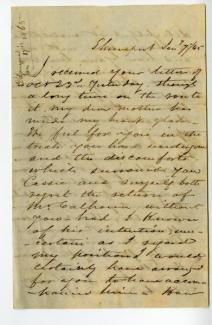 Shreveport Jan 7/65
I received your letter of
Oct 23rd yesterday though
a long time on the route
it my dear mother has
made my heart glad.
We feel for you in the
trials you have undergone
and the discomforts
which surround you
Cassie and myself both
regret the return of
Mr Calhoun without
you - had I known
of his intention un-
certain as I regard
my position I would
certainly have arranged
for you to have accom-
panied him - How